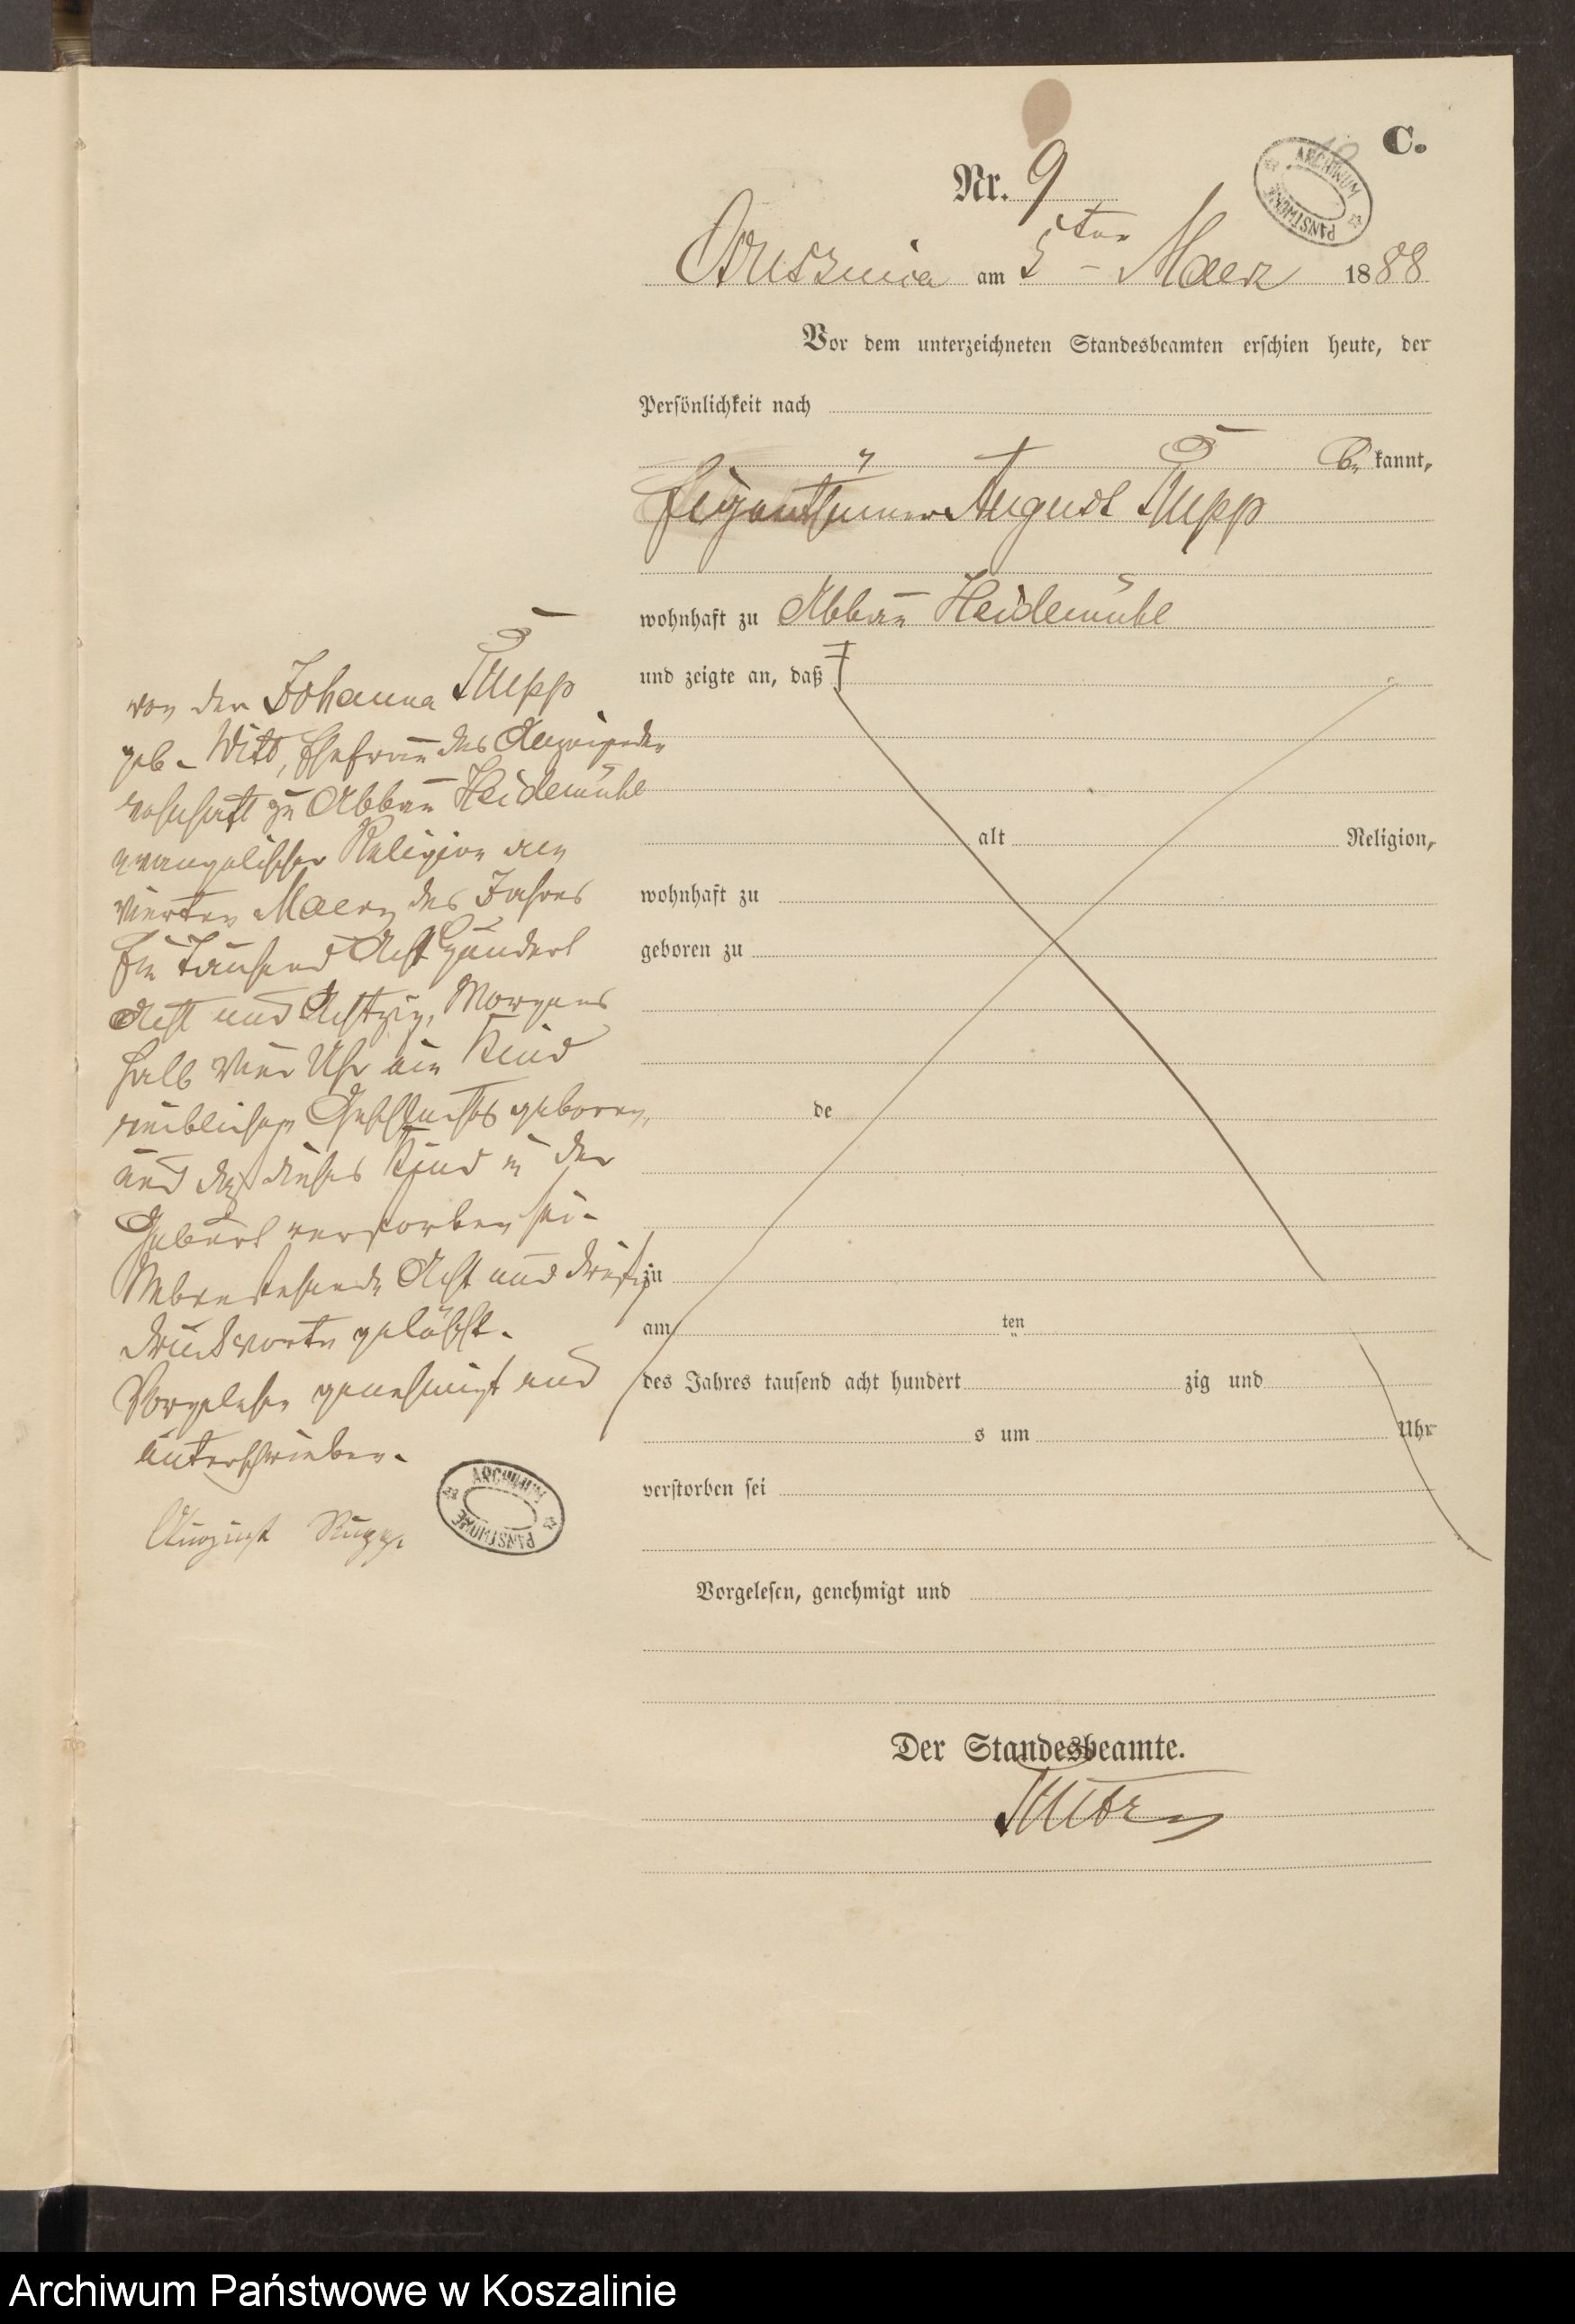 C.
Nr. 9
ARCHIWUM PAŃSTWOWE
am 5ten Maerz 1888
Vor dem unterzeichneten Standesbeamten erschien heute, der
Persönlichkeit nach
be kannt,
Eigenthümer August Rupp
wohnhaft zu Abbau Heidemühl
und zeigte an, daß
von der Johanna Rupp
geb. Witt, Ehefrau des Anzeigenden
wohnhaft zu Abbau Heidemühl
evangelischer Religion am
vierten Maerz des Jahres
Ein Tausend Acht Hundert
Acht und Achtzig, Morgens
halb vier Uhr ein Kind
weiblichen Geschlechts geboren,
und daß dieses Kind in der
Geburt verstorben sei.
Nebenstehende Acht und dreißig
Druckworte gelöscht.
Vorgelesen genehmigt und
unterschrieben.
August Rupp
ARCHIWUM PAŃSTWOWE
alt Religion,
wohnhaft zu
geboren zu
de
zu
am ten
des Jahres tausend acht hundert zig und
s um Uhr
verstorben sei
Vorgelesen, genehmigt und
Der Standesbeamte.
Archiwum Państwowe w Koszalinie